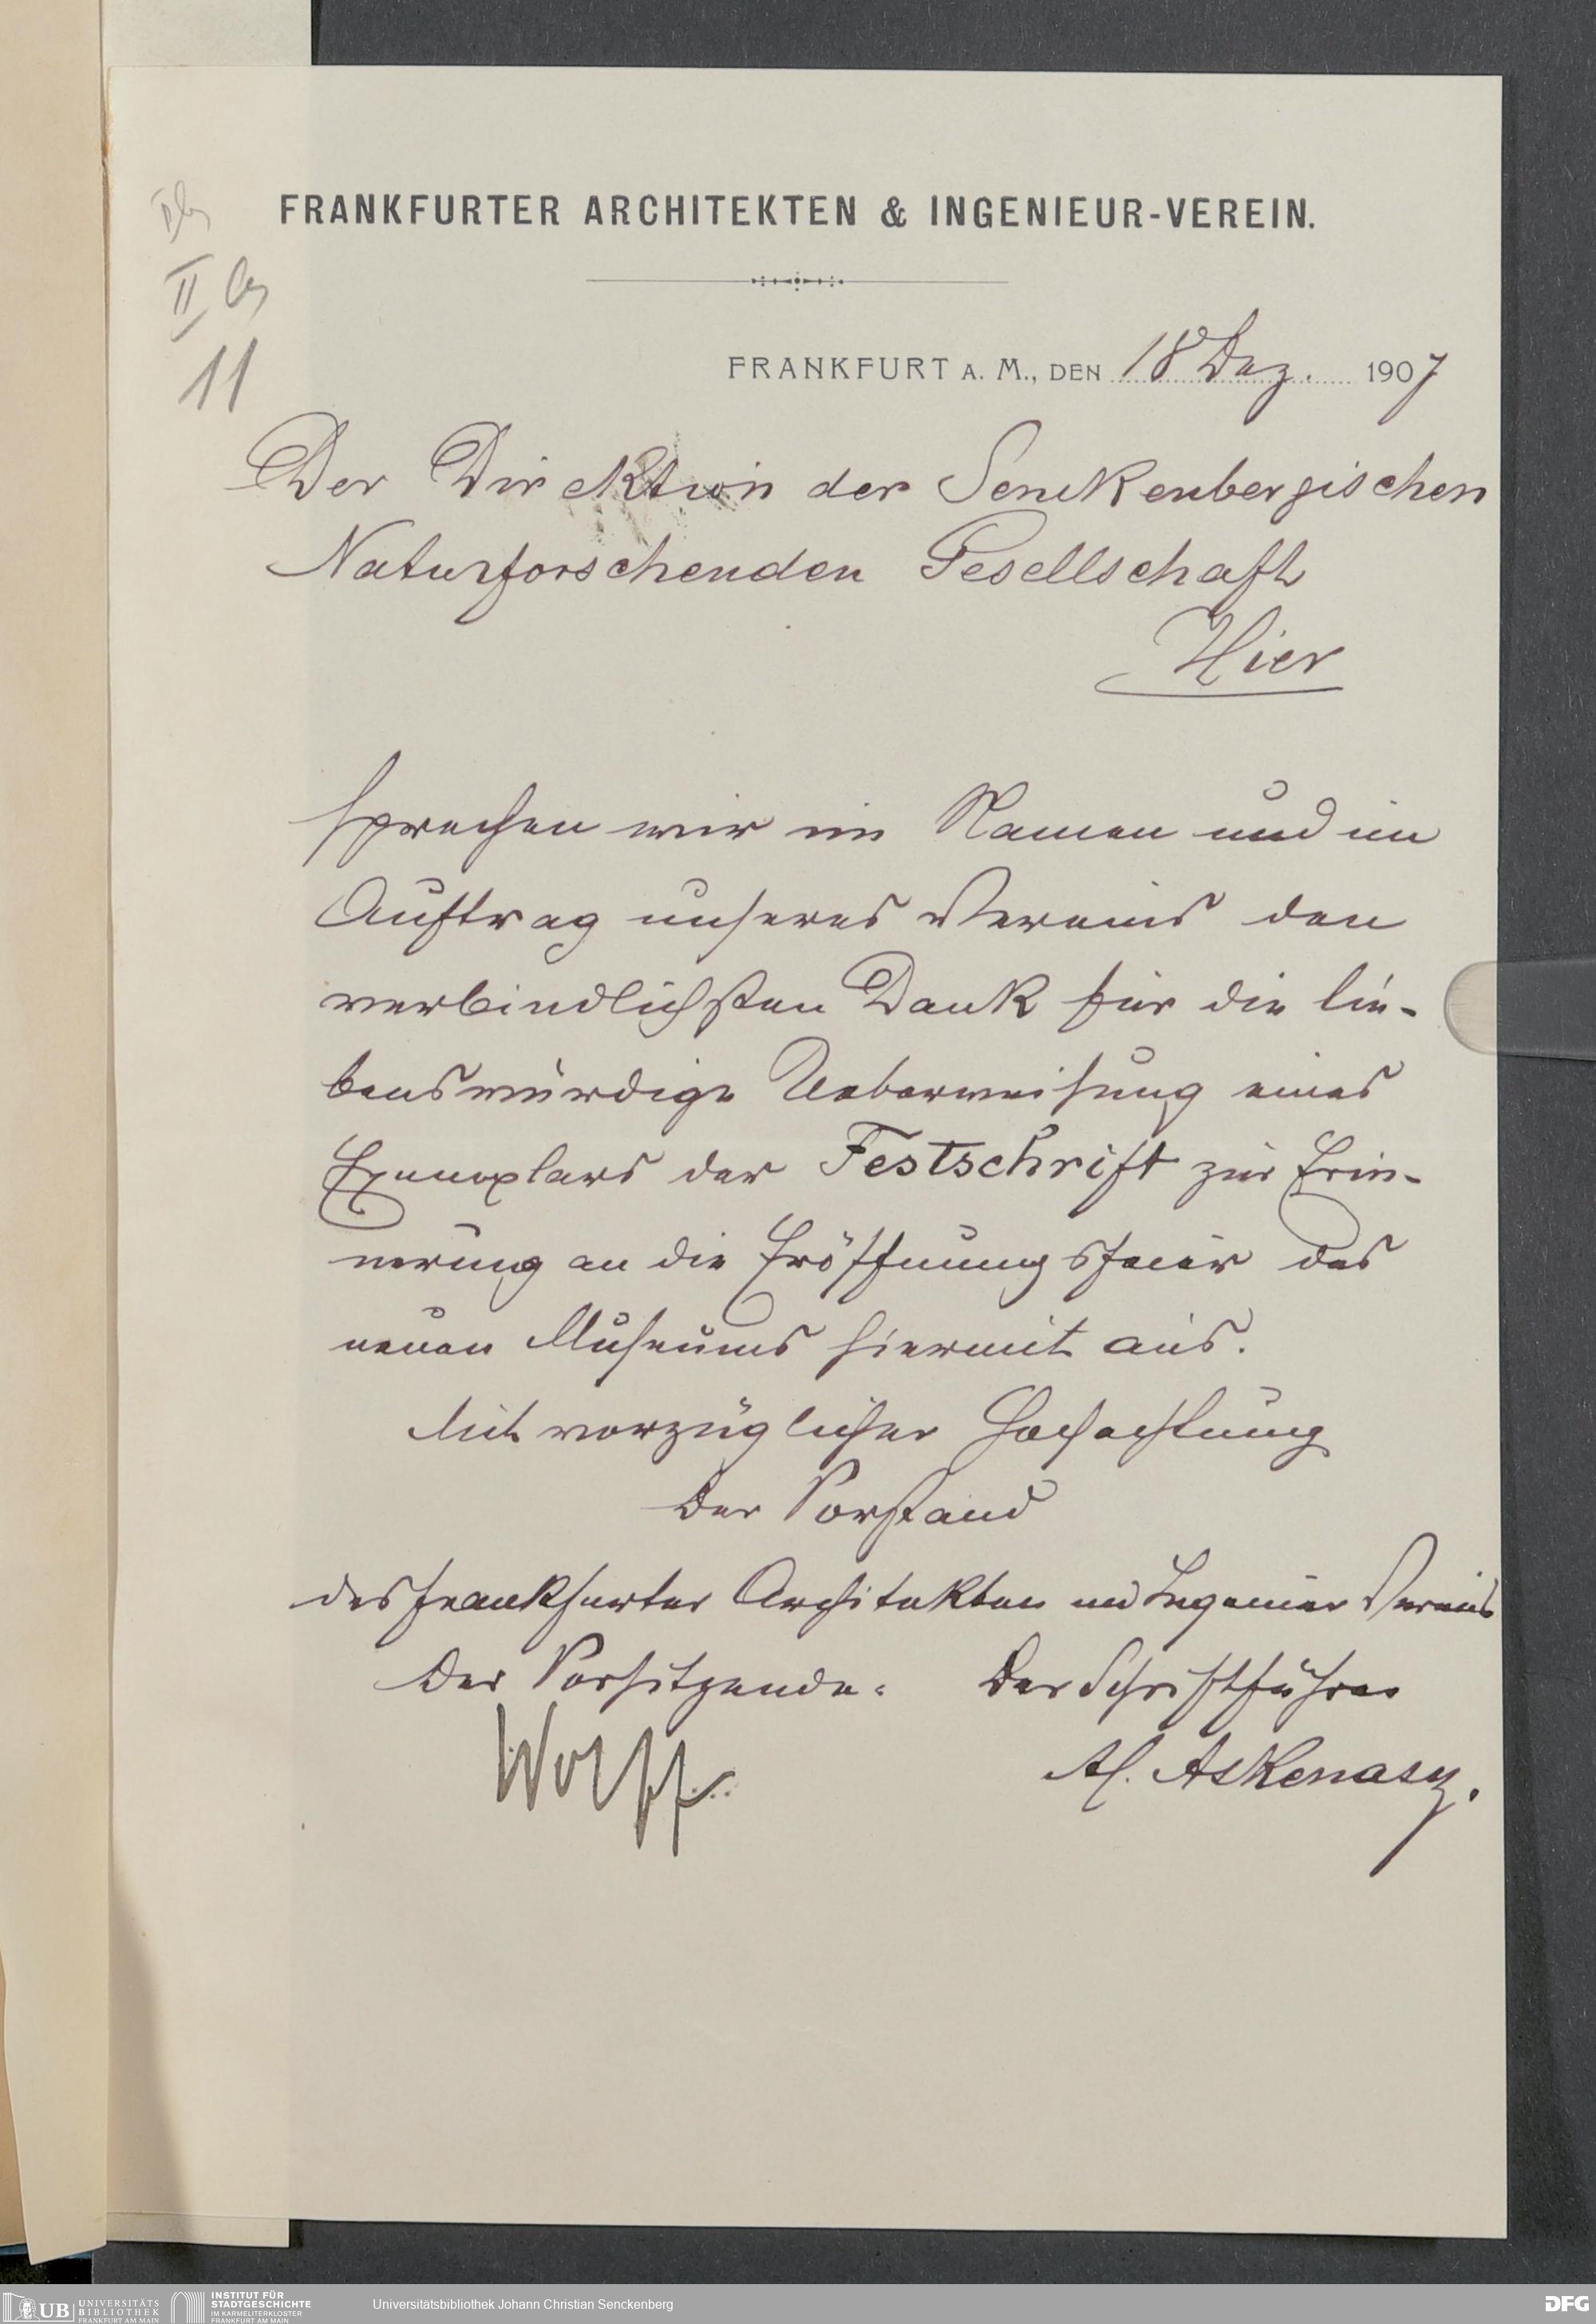 FRANKFURTER ARCHITEKTEN & INGENIEUR-VEREIN.
II
11
FRANKFURT A. M., DEN 18 Dez. 1907
Der Direktion der Senckenbergischen
Naturforschenden Gesellschaft
Hier
sprechen wir im Namen und im
Auftrag unseres Vereins den
verbindlichsten Dank für die lie-
benswürdige Ueberweisung eines
Exemplars der Festschrift zur Erin-
nerung an die Eröffnungsfeier des
neuen Museums hiermit aus.
Mit vorzüglicher Hochachtung
Der Vorstand
des Frankfurter Architekten und Ingenieur Vereins
Der Vorsitzende. Der Schriftführer
Wolff. Al. Askenasy.
UB UNIVERSITÄTS
BIBLIOTHEK
FRANKFURT AM MAIN
INSTITUT FÜR
STADTGESCHICHTE
IM KARMELITERKLOSTER
FRANKFURT AM MAIN
Universitätsbibliothek Johann Christian Senckenberg
DFG